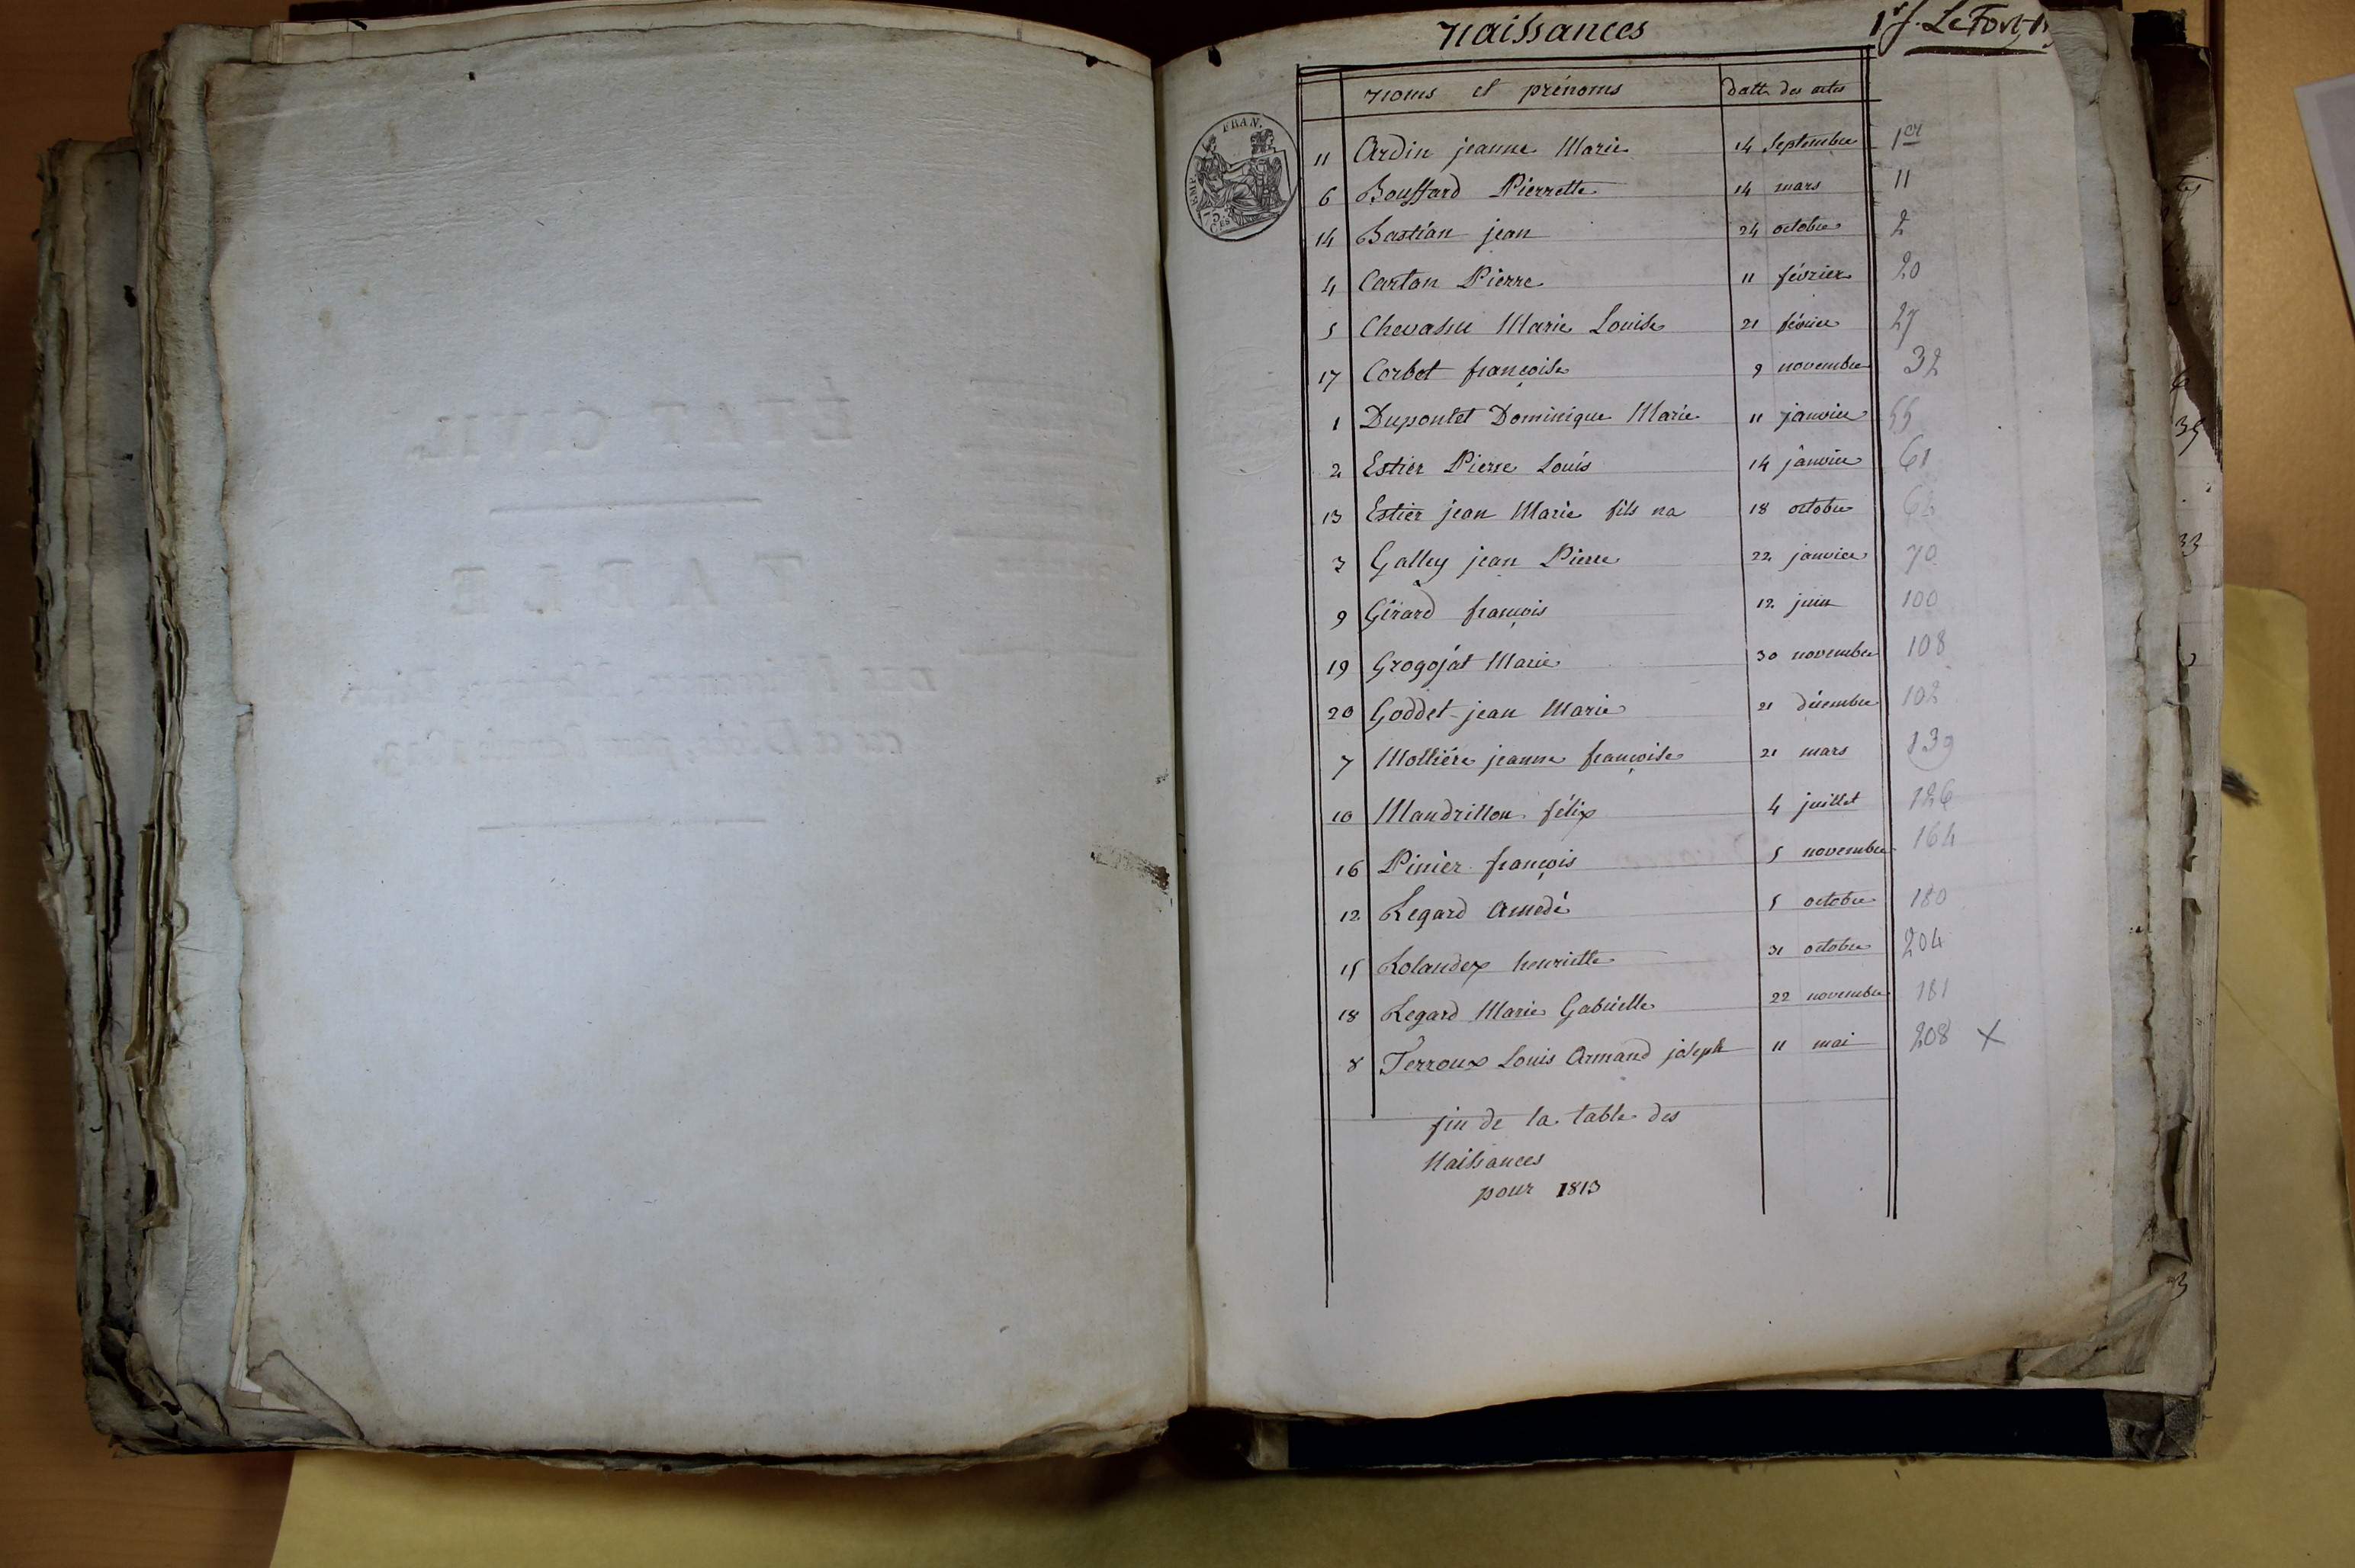 ÉTAT CIVIL.
TABLE
Naissances
1r f. Le Fort
Noms et prénoms datte des actes
11 Ardin jeanne Marie 14 Septembre 1er
6 Bouffard Pierrette 14 mars 11
14 Bastian jean 24 octobre 2
4 Carton Pierre 11 février 20
5 Chevassu Marie Louise 21 février 27
17 Corbet françoise 9 novembre 32
1 Dupontet Dominique Marie 11 janvier 55
2 Estier Pierre Louis 14 janvier 61
13 Estier jean Marie fils na 18 octobre 62
3 Galley jean Pierre 22 janvier 70
9 Girard françois 12 juin 100
19 Grogojat Marie 30 novembre 108
20 Goddet jean Marie 21 décembre 102
7 Mollière jeanne françoise 21 mars 139
10 Mandrillon félix 4 juillet 126
16 Pinier françois 5 novembre 164
12 Regard Amedé 5 octobre 180
15 Rolandex henriette 31 octobre 204
18 Regard Marie Gabrielle 22 novembre 181
8 Terroux Louis Armand joseph 11 mai 208 X
fin de la table des
Naissances
pour 1813